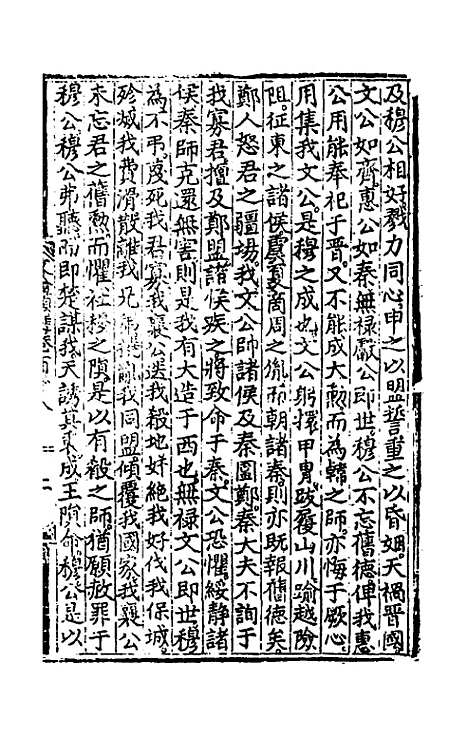 及穆公相好戮力同心申之以盟誓重之以昏姻天禍晉國
文公如齊惠公如秦無禄獻公即世穆公不忘舊德俾我惠
公用能奉祀于晉又不能成大勲而為韓之師亦悔于厥心
用集我文公是穆之成也文公躬擐甲胄跋履山川踰越險
阻征東之諸侯虞夏商周之胤而朝諸秦則亦既報舊德矣
鄭人怒君之疆場我文公帥諸侯及秦圍鄭秦大夫不詢于
我寡君擅及鄭盟諸侯疾之將致命于秦文公恐懼綏靜諸
侯秦師克還無害則是我有大造于西也無禄文公即世穆
為不弔蔑死我君寡我襄公迭我殽地奸絶我好伐我保城
殄滅我費滑散離我兄弟撓亂我同盟傾覆我國家我襄公
未忘君之舊勲而懼社稷之隕是以有殽之師猶願赦罪于
穆公穆公弗聽而即楚謀我天誘其衷成王隕命穆公是以